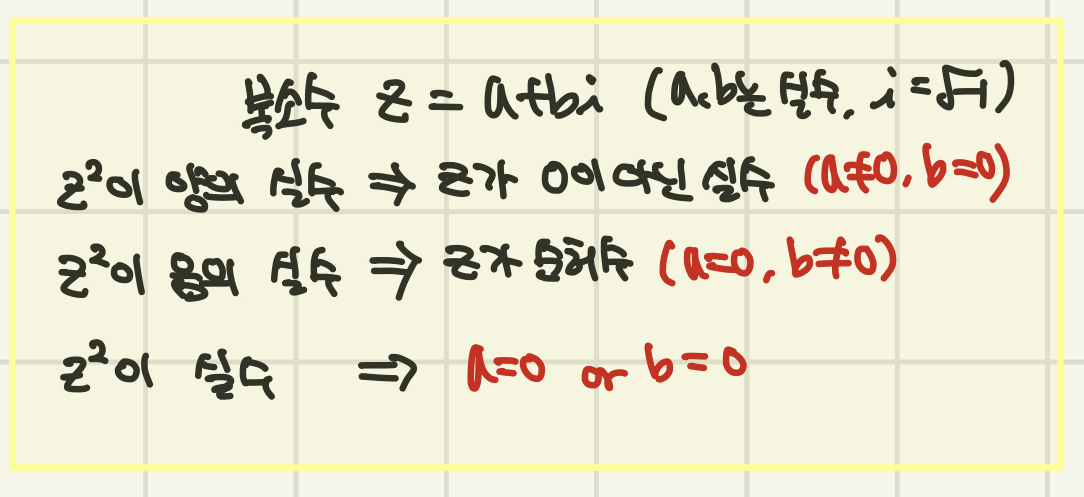 복소수 z = a+bi (a,b는 실수, i=√-1)
z²이 양의 실수 ⇒ z가 0이 아닌 실수 (a≠0, b=0)
z²이 음의 실수 ⇒ z가 순허수 (a=0, b≠0)
z²이 실수 ⇒ a=0 or b=0